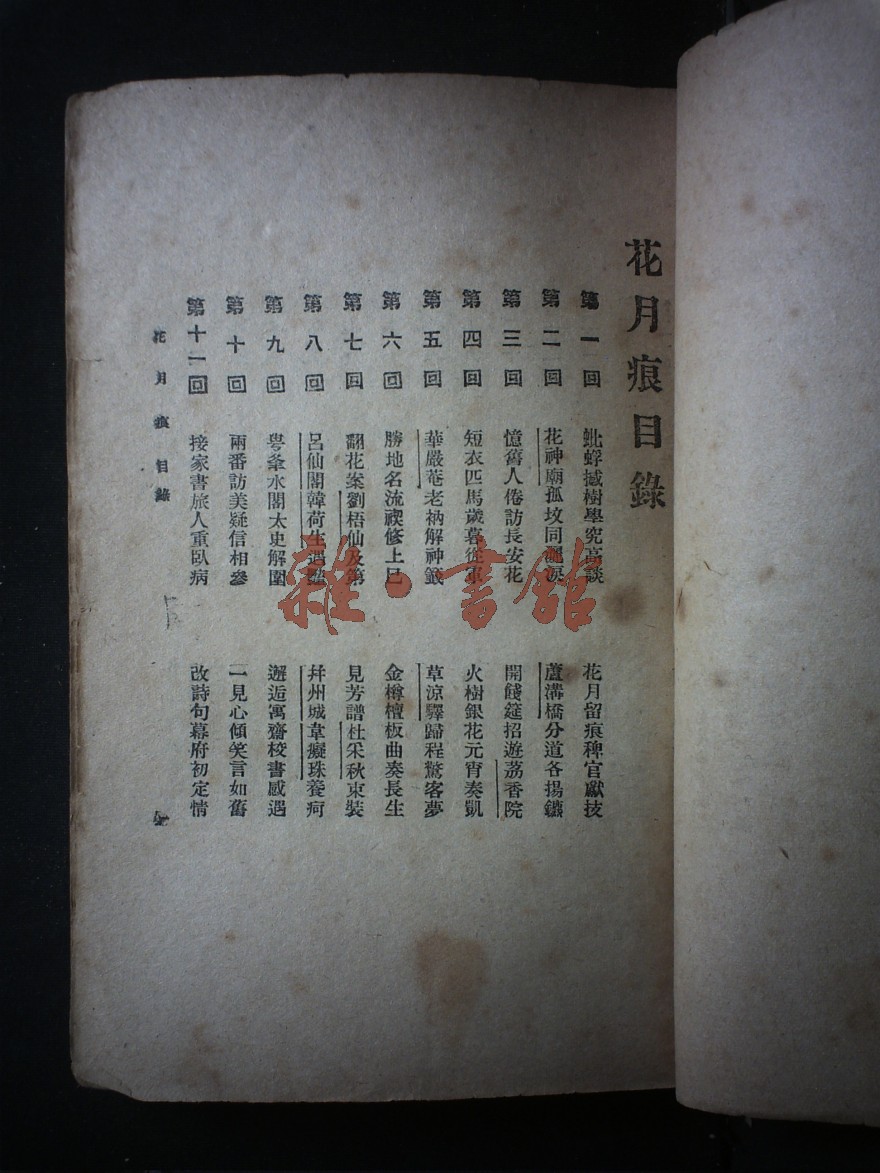 花月痕目錄
第一回 蚍蜉撼樹學究高談 花月留痕稗官獻技
第二回 花神廟孤墳同灑淚 蘆溝橋分道各揚鑣
第三回 憶舊人倦訪長安花 開餞筵招遊荔香院
第四回 短衣匹馬歲暮從軍 火樹銀花元宵奏凱
第五回 華嚴菴老衲解神籤 草凉驛歸程驚客夢
第六回 勝地名流禊修上巳 金樽檀板曲奏長生
第七回 翻花案劉梧仙及第 見芳譜杜采秋束裝
第八回 呂仙閣韓荷生遇艷 并州城韋癡珠養疴
第九回 水閣太史解圍 邂逅寓齋校書感遇
第十回 兩番訪美疑信相參 一見心傾笑言如舊
第十一回 接家書旅人重臥病 改詩句幕府初定情
花月痕 目錄
雜·書館